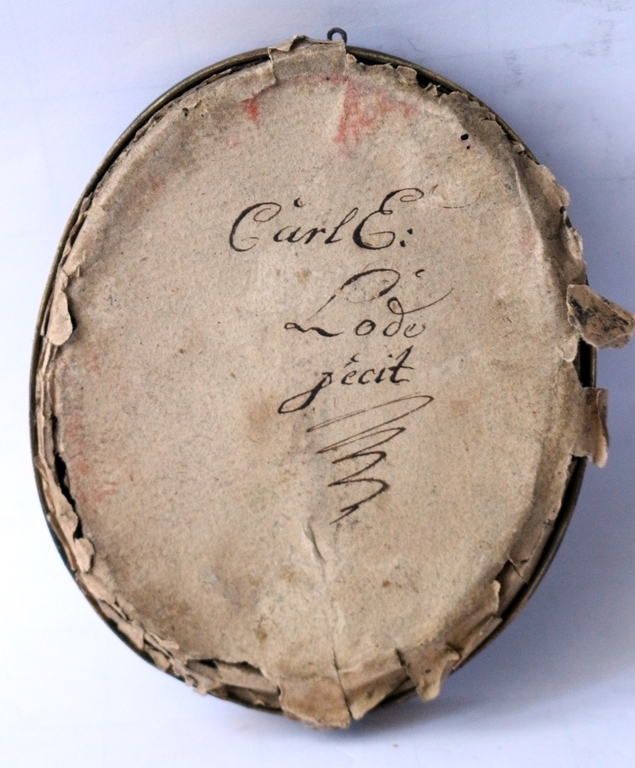 Carl E:
Lode
pecit